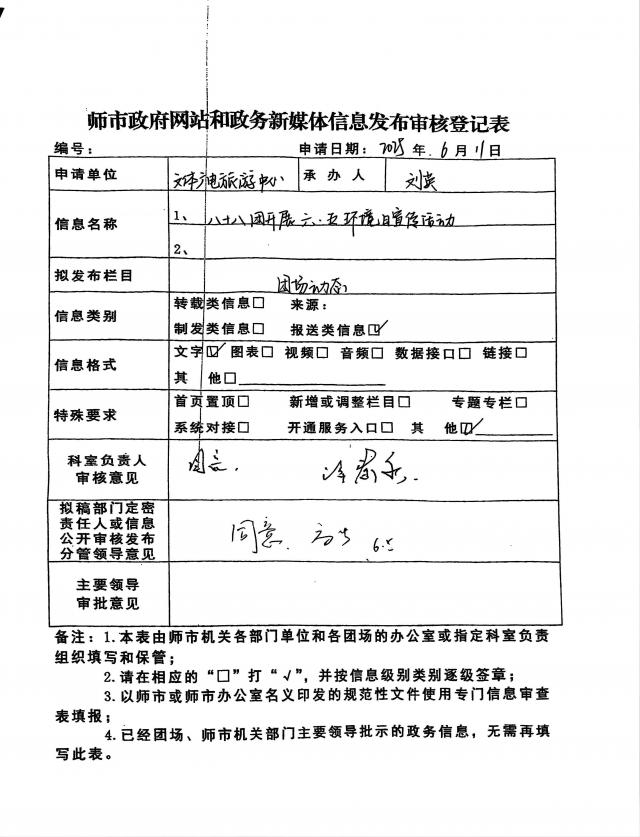 师市政府网站和政务新媒体信息发布审核登记表
编号： 申请日期：2025年 6月11日
申请单位 文体广电旅游中心 承办人 刘英
信息名称 1、八十八团开展六·五环境日宣传活动
2、
拟发布栏目 团场动态
信息类别 转载类信息□ 来源：
制发类信息□ 报送类信息☑
信息格式 文字☑ 图表□ 视频□ 音频□ 数据接口□ 链接□
其 他□
特殊要求 首页置顶□ 新增或调整栏目□ 专题专栏□
系统对接□ 开通服务入口□ 其 他☑
科室负责人
审核意见 同意.
拟稿部门定密
责任人或信息
公开审核发布
分管领导意见 同意.
主要领导
审批意见
备注：1.本表由师市机关各部门单位和各团场的办公室或指定科室负责
组织填写和保管；
2.请在相应的“□”打“√”，并按信息级别类别逐级签章；
3.以师市或师市办公室名义印发的规范性文件使用专门信息审查
表填报；
4.已经团场、师市机关部门主要领导批示的政务信息，无需再填
写此表。